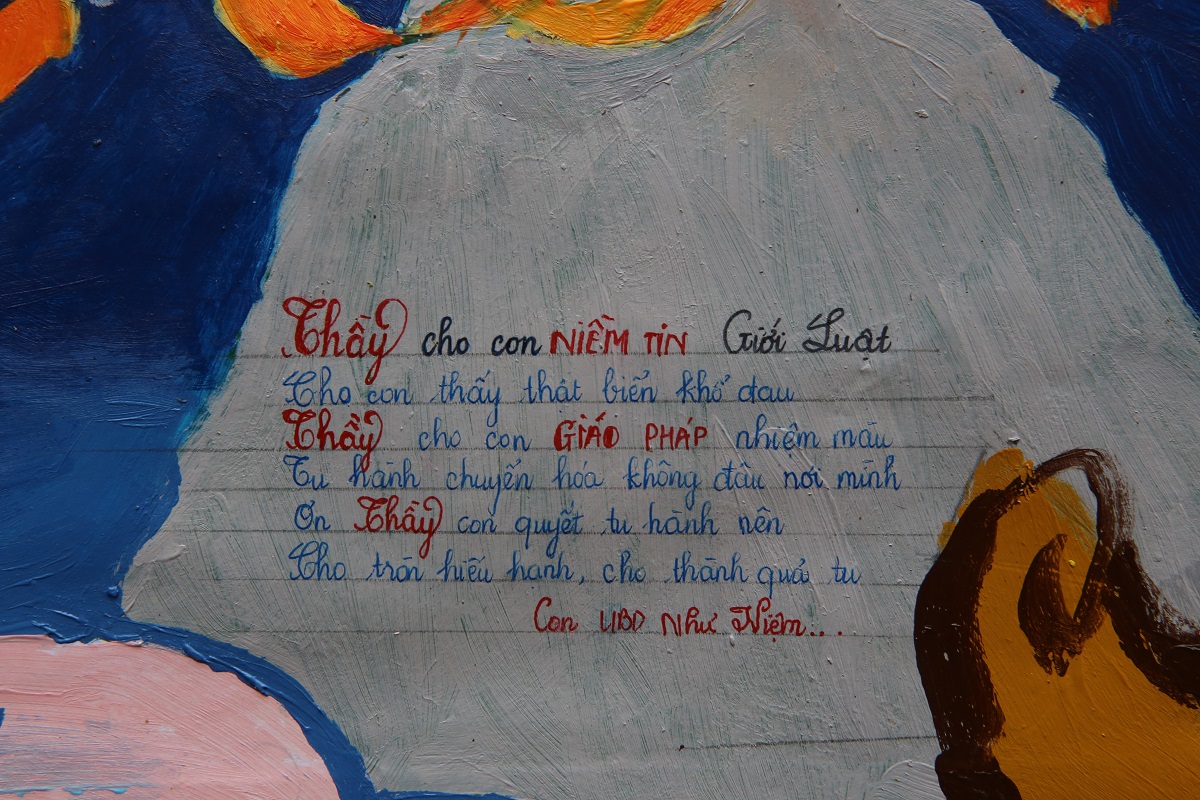 Thầy cho con NIỀM TIN Giới Luật
Cho con thấy thật biển khổ đau
Thầy cho con GIÁO PHÁP nhiệm màu
Tu hành chuyển hóa không đâu nơi mình
Ơn Thầy con quyết tu hành nên
Cho tròn hiếu hạnh, cho thành quả tu
Con UBD NHƯ Niệm...